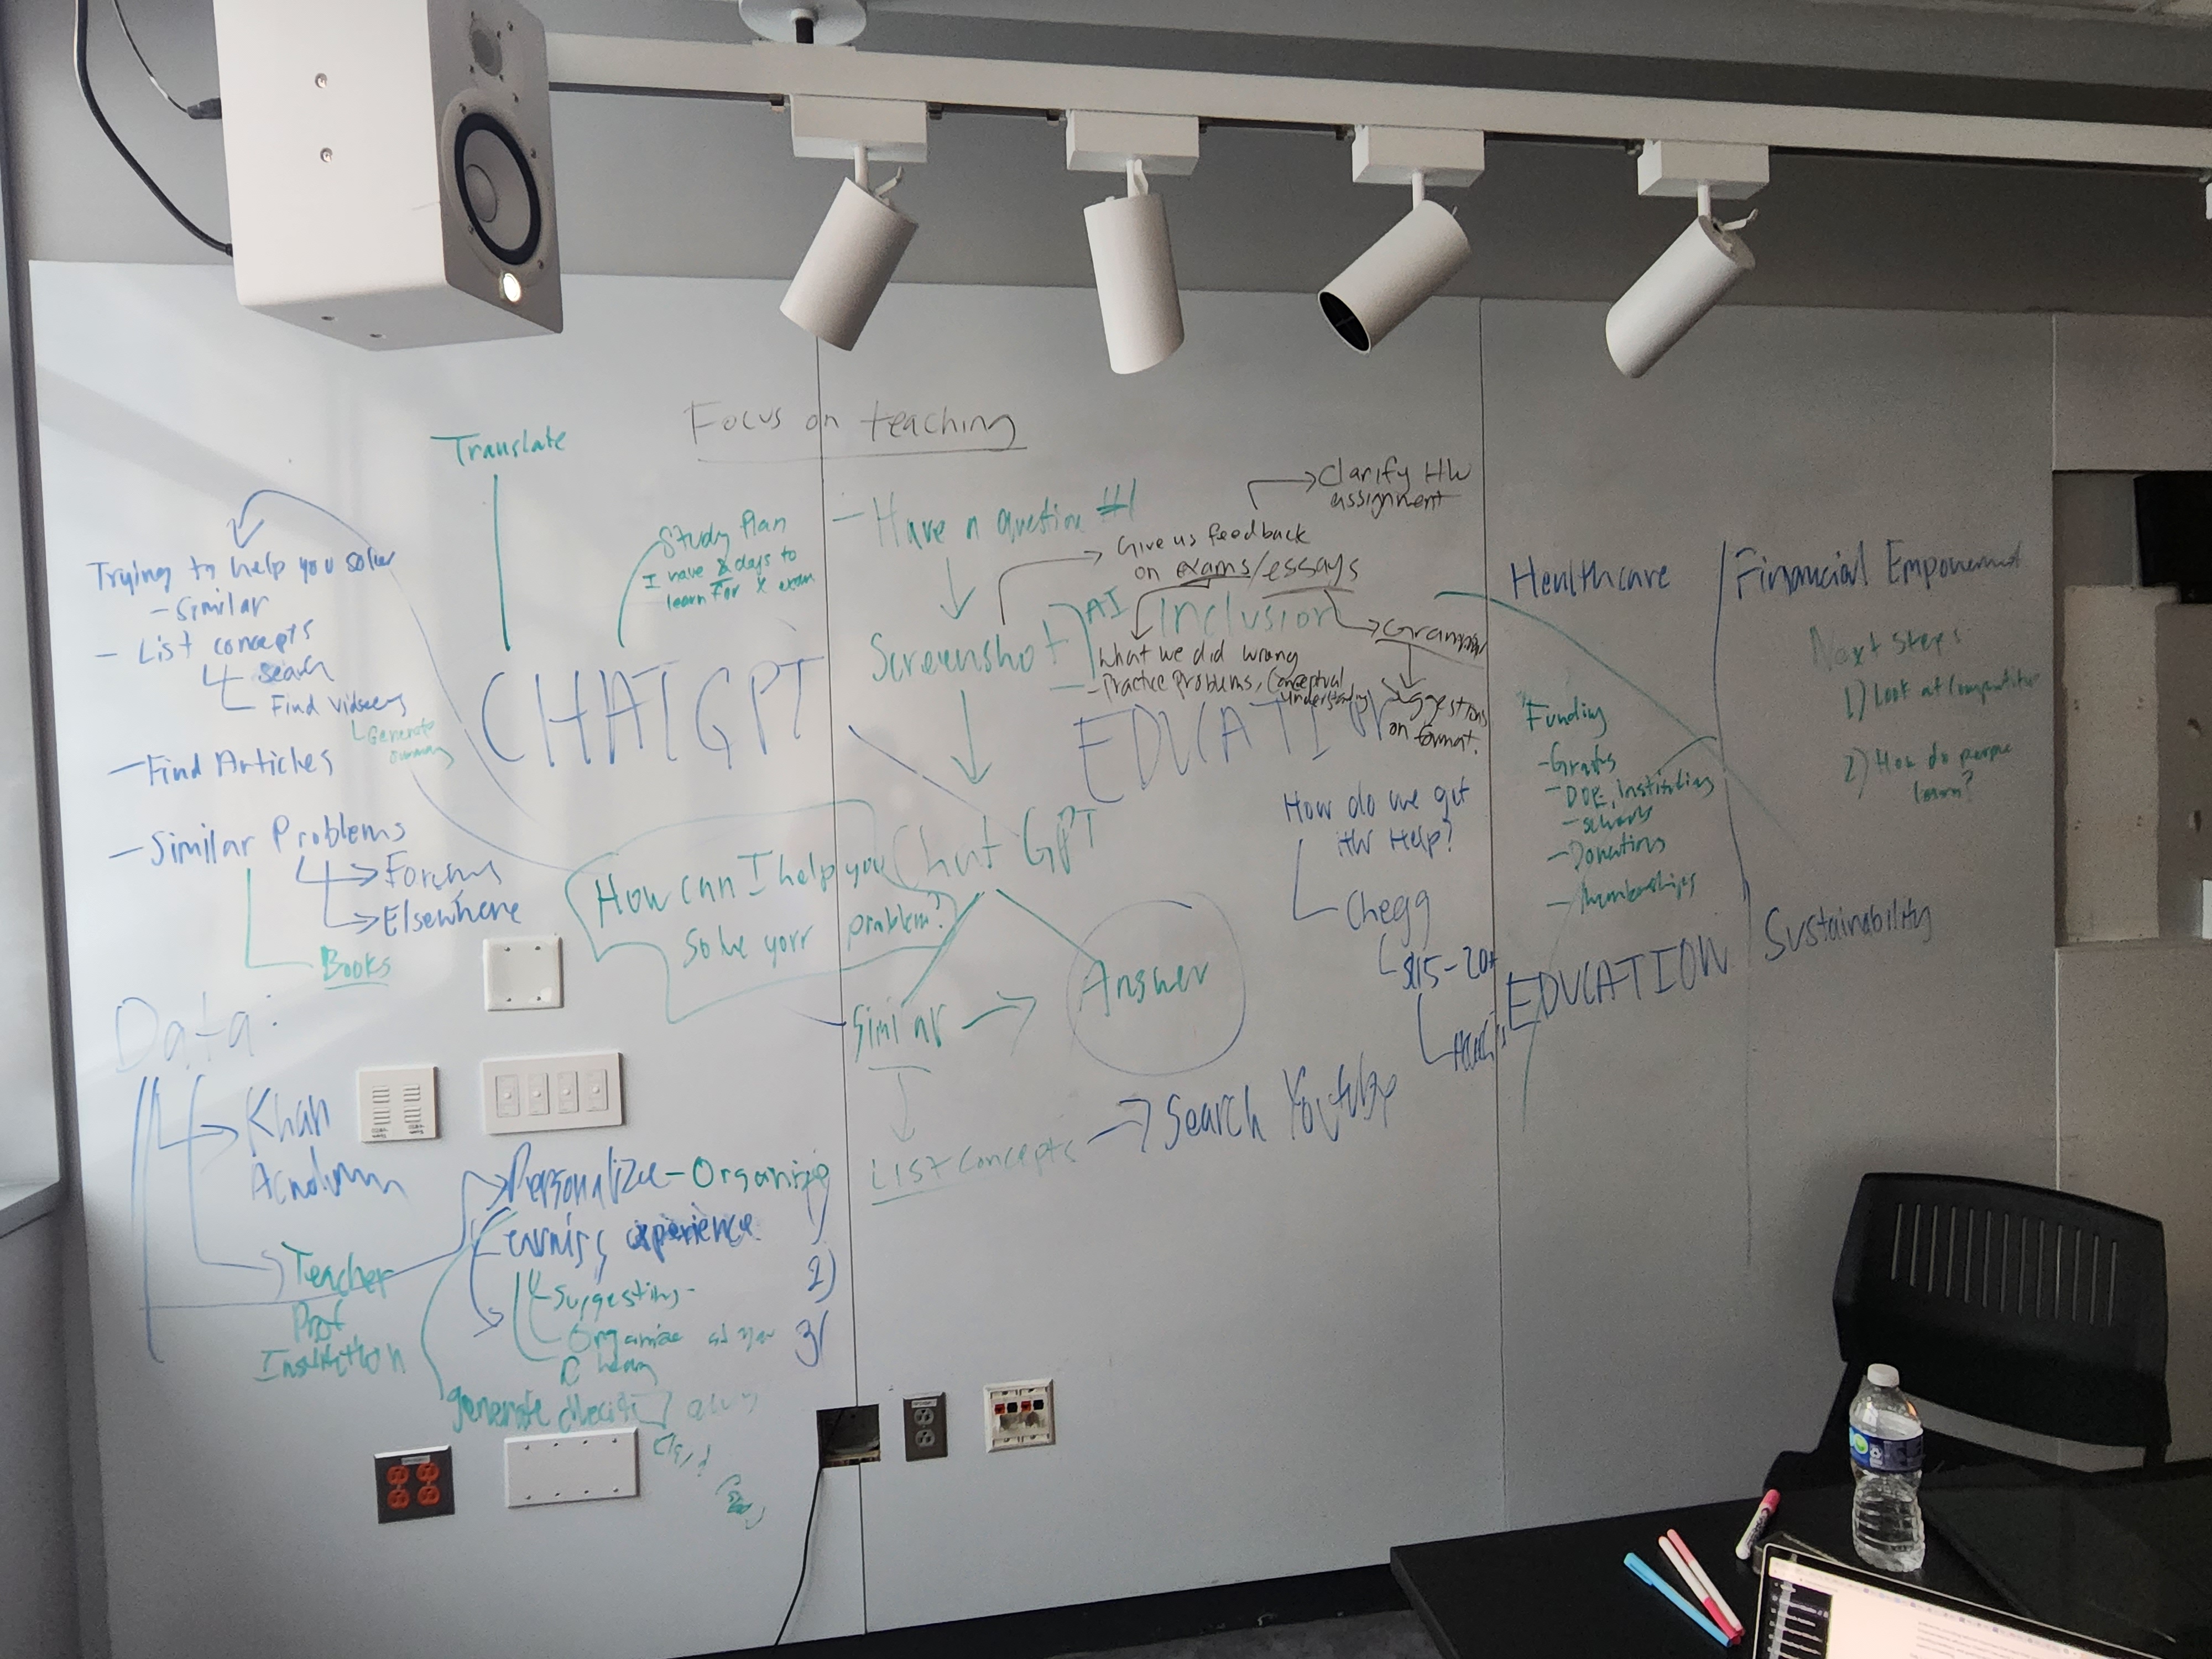 Focus on teaching
Translate
Study Plan
I have 2 days to
learn for X exam
- Have a question #1
Clarify HW
assignment
Give us feedback
on exams/essays
Trying to help you solve
- Similar
- List concepts
search
Find videos
Generate
summary
- Find Articles
- Similar Problems
Forums
Elsewhere
Books
CHATGPT
Screenshot
AI
Inclusion
Grammar
What we did wrong
- Practice Problems, Conceptual
Understanding
suggestions
on format.
EDUCATION
Chat GPT
How can I help you
solve your problem?
Similar
Answer
List Concepts
Search Youtube
How do we get
HW Help?
Chegg
$15-20+
Healthcare
Financial
Funding
- Grants
- DOE, institutions
- schools
- Donations
- Memberships
EDUCATION
Sustainability
Next steps
1) Look at
2) How do people
learn?
Data:
Khan
Teacher
Prof
Institution
Personalize - Organize
Learning experience
Suggestions -
Organize
generate
1)
2)
3)